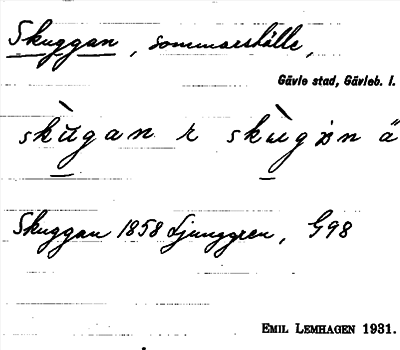 Skuggan, sommarställe,
Gävle stad, Gävleb. l.
skùgan r skùgɔn ä
Skuggan 1858 Ljunggren, G98
EMIL LEMHAGEN 1931.